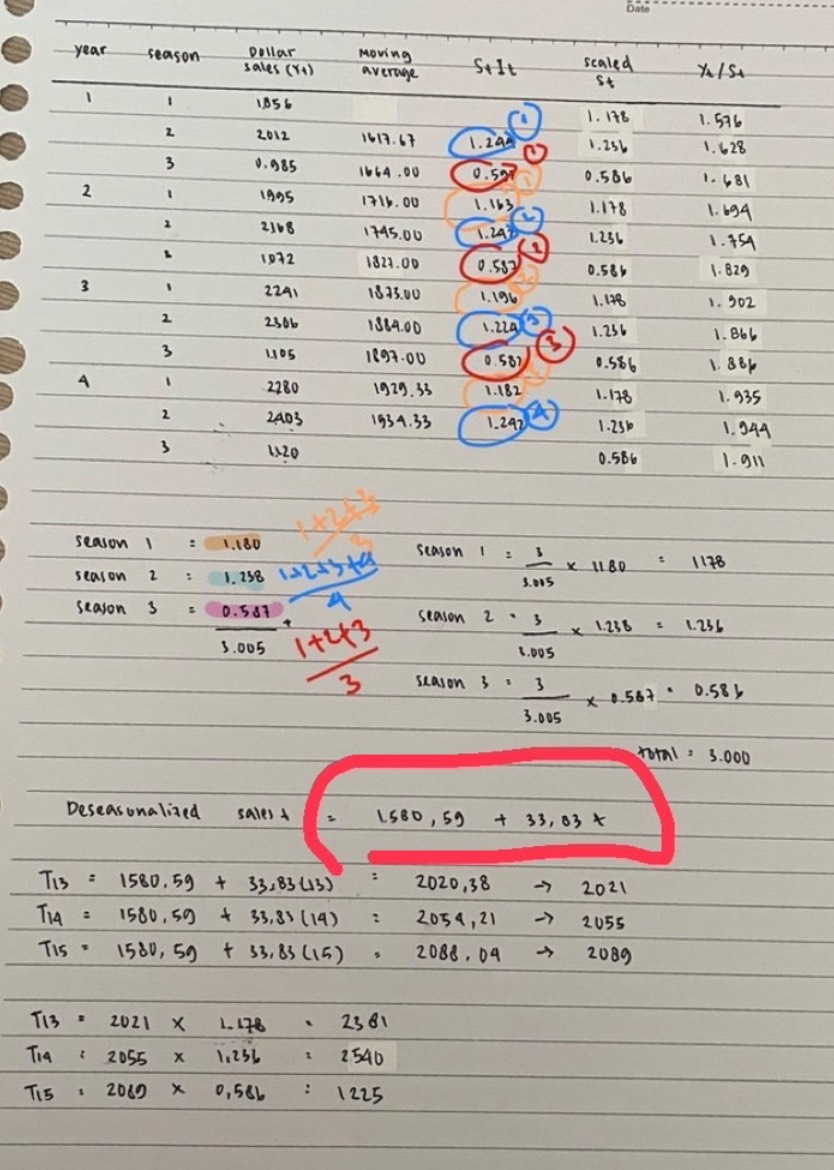 Date
year season Dollar sales (Yt) Moving average StIt scaled St Yt/St
1 1 1,856 1.178 1.576
2 2012 1617.67 1.244 1 1.236 1.628
3 0.985 1664.00 0.592 1 0.586 1.681
2 1 1995 1716.00 1.163 1 1.178 1.694
2 2168 1745.00 1.242 2 1.236 1.754
1072 1827.00 0.587 2 0.586 1.829
3 1 2241 1873.00 1.196 2 1.178 1.902
2 2306 1884.00 1.224 3 1.236 1.866
3 1.105 1897.00 0.582 3 0.586 1.886
4 1 2280 1929.33 1.182 3 1.178 1.935
2 2403 1934.33 1.242 4 1.236 1.944
3 1.120 0.586 1.911
season 1 = 1.180 1+2+3/3
season 2 = 1.238 1+2+3+4/4
season 3 = 0.587 + 1+2+3/3
3.005
season 1 = 3/3.005 x 1180 = 1178
season 2 = 3/3.005 x 1.238 = 1.236
season 3 = 3/3.005 x 0.587 = 0.586
total = 3.000
Deseasonalized sales t = 1.580,59 + 33,83 t
T13 = 1580,59 + 33,83 (13) = 2020,38 → 2021
T14 = 1580,59 + 33,83 (14) = 2054,21 → 2055
T15 = 1580,59 + 33,83 (15) = 2088,04 → 2089
T13 = 2021 x 1.178 = 2381
T14 = 2055 x 1,236 = 2540
T15 = 2089 x 0,586 = 1225